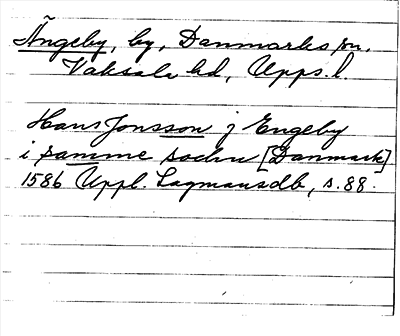 Ängeby, by, Danmarks sn,
Vaksala hd, Upps. l.
Hans Jonsson j Engeby
i samme sochn [Danmark]
1586 Uppl. Lagmansdb, s. 88.